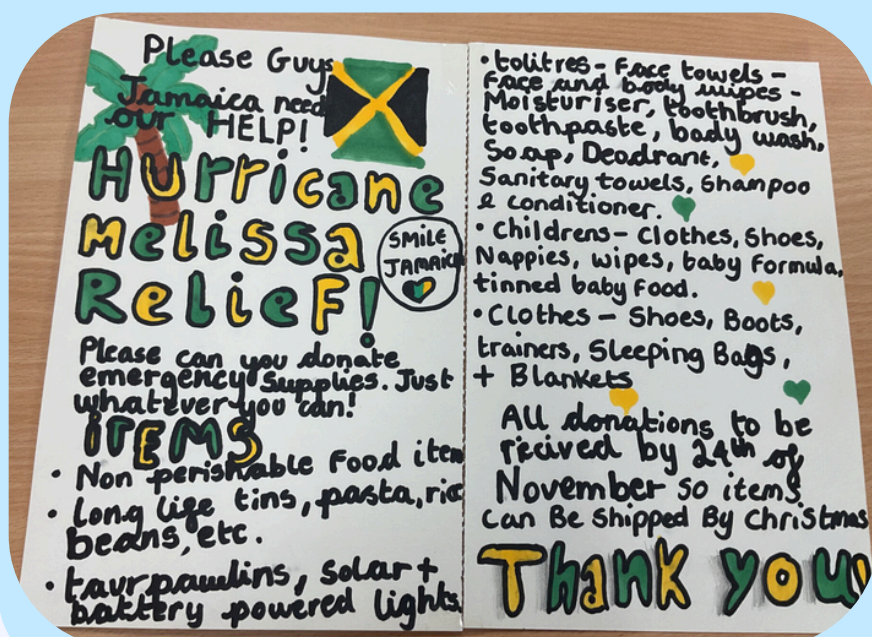 Please Guys
Jamaica need
our HELP!
Hurricane
Melissa
Relief!
SMILE
JAMAICA
Please can you donate
emergency supplies. Just
whatever you can!
ITEMS
• Non perishable Food item
• Long life tins, pasta, ric
beans, etc.
• taurpawlins, solar +
battery powered lights
• tolitres - Face towels -
Face and body wipes -
Moisturiser, toothbrush,
toothpaste, body wash,
Soap, Deodrant,
Sanitary towels, Shampoo
& conditioner.
• Childrens - Clothes, Shoes,
Nappies, wipes, baby Formula,
tinned baby Food.
• Clothes - Shoes, Boots,
trainers, Sleeping Bags,
+ Blankets
All donations to be
ricived by 24th of
November so items
can Be Shipped By Christmas
Thank you!